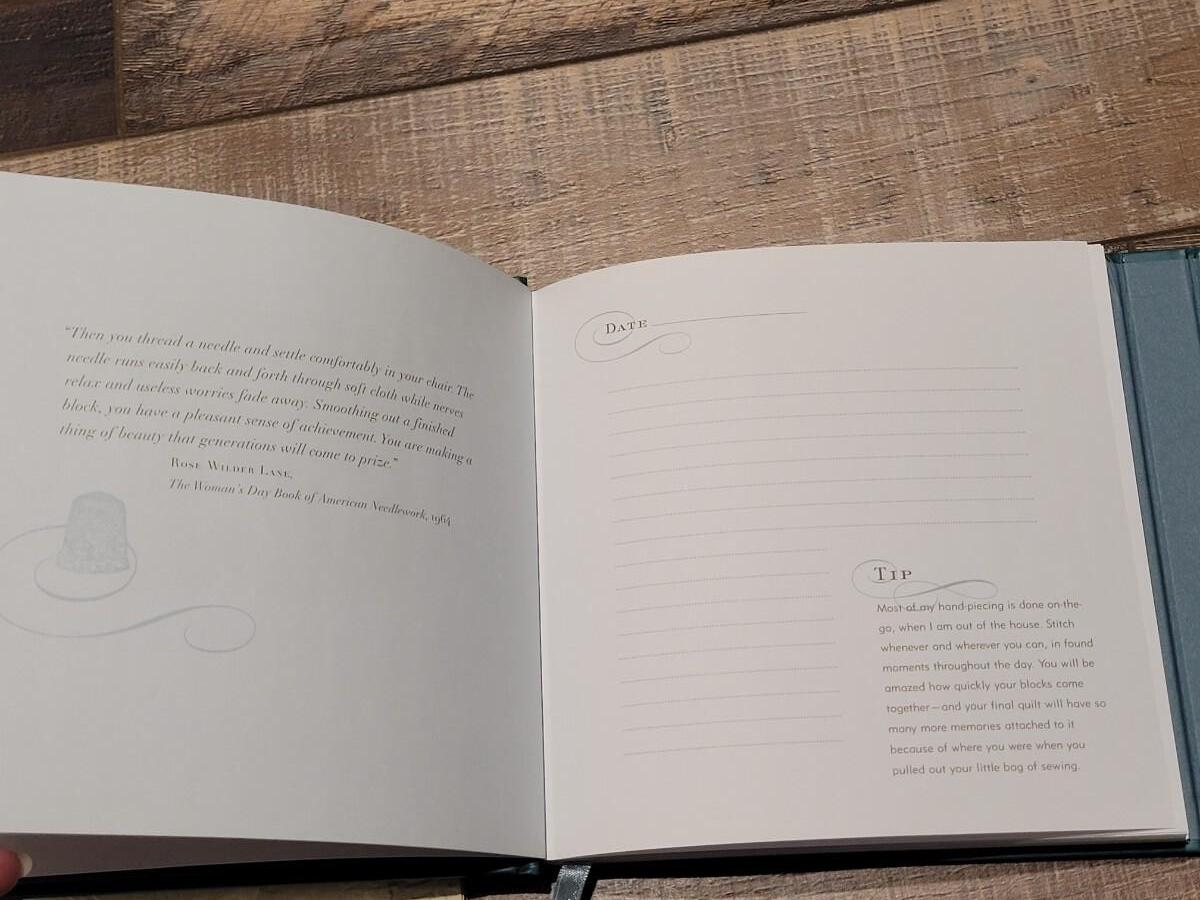 “Then you thread a needle and settle comfortably in your chair. The
needle runs easily back and forth through soft cloth while nerves
relax and useless worries fade away. Smoothing out a finished
block, you have a pleasant sense of achievement. You are making a
thing of beauty that generations will come to prize.”
Rose Wilder Lane,
The Woman's Day Book of American Needlework, 1964
Date
Tip
Most of my hand-piecing is done on-the-
go, when I am out of the house. Stitch
whenever and wherever you can, in found
moments throughout the day. You will be
amazed how quickly your blocks come
together—and your final quilt will have so
many more memories attached to it
because of where you were when you
pulled out your little bag of sewing.